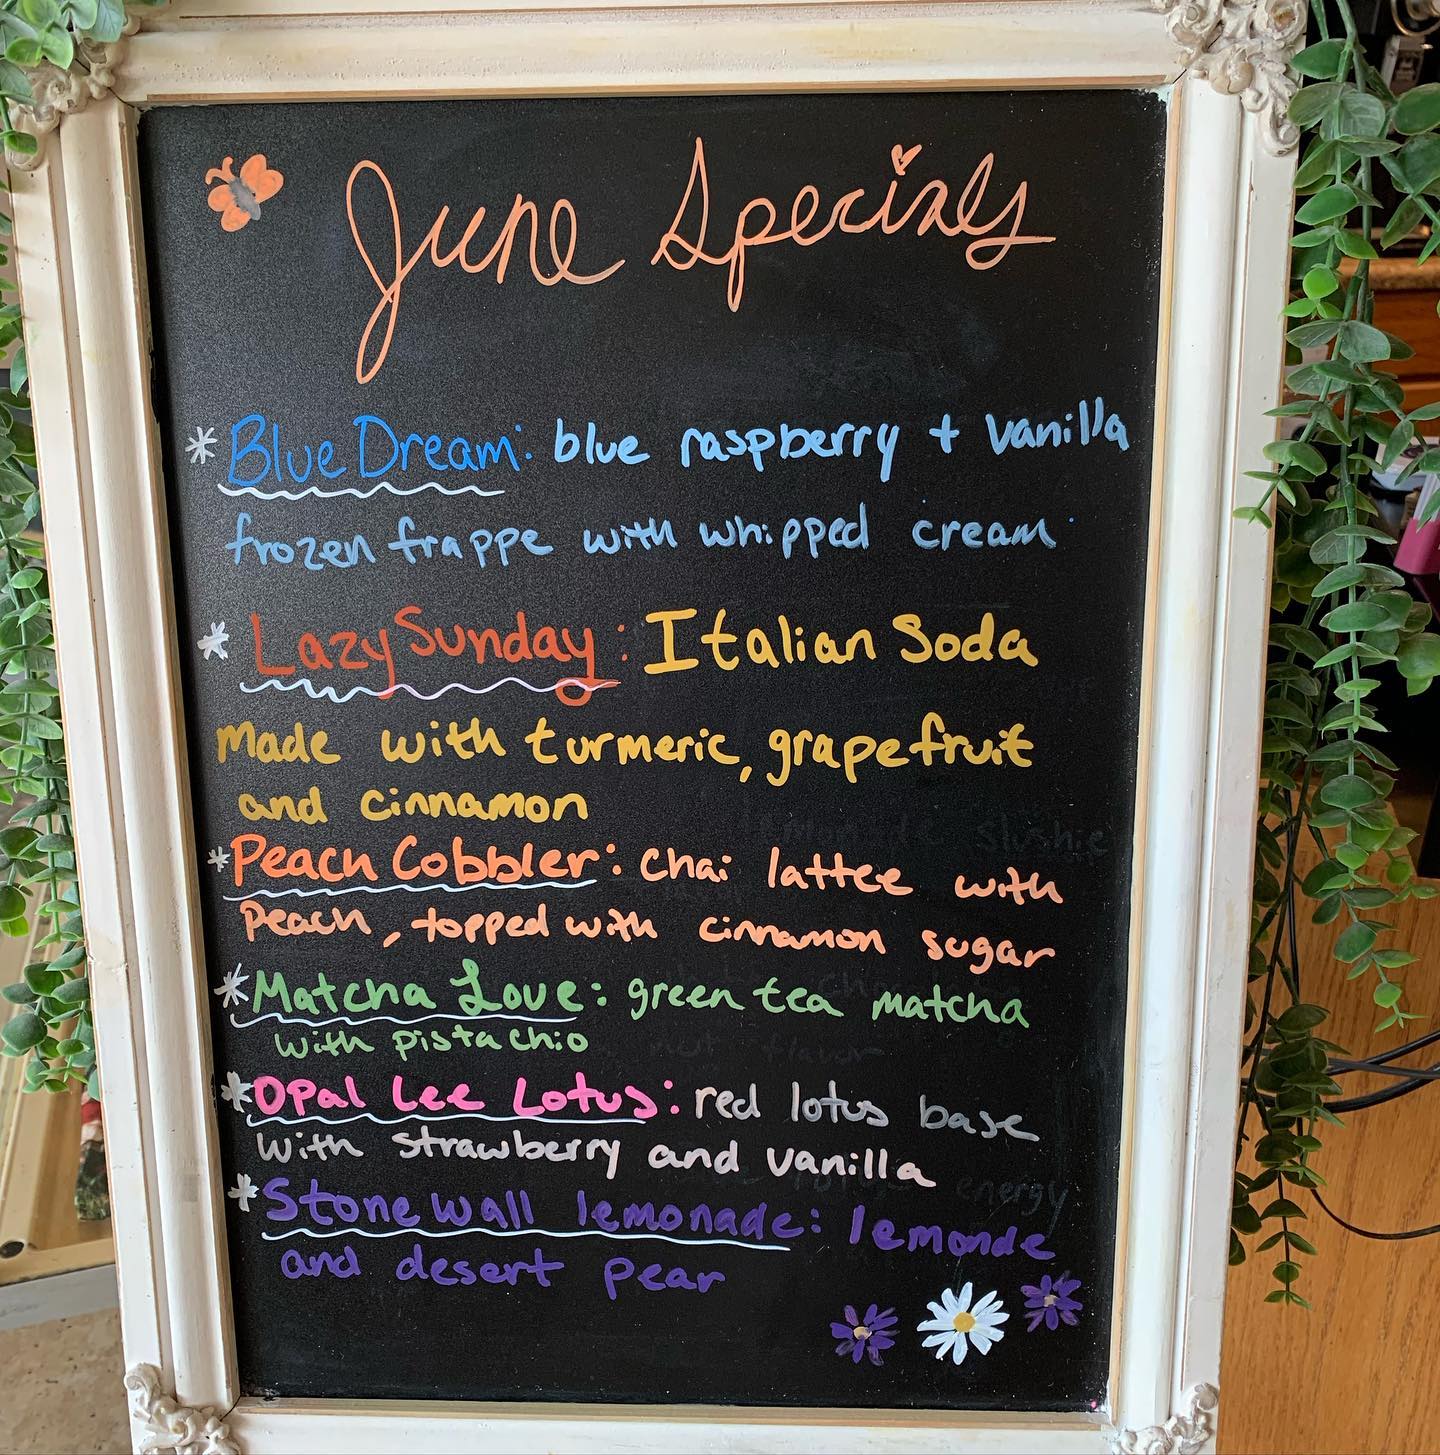 June Specials
* Blue Dream: blue raspberry + vanilla
frozen frappe with whipped cream
* Lazy Sunday: Italian Soda
Made with turmeric, grapefruit
and cinnamon
* Peach Cobbler: chai lattee with
Peach, topped with cinnamon sugar
* Matcha Love: green tea matcha
with pistachio
* Opal Lee Lotus: red lotus base
with strawberry and vanilla
* Stonewall lemonade: lemonde
and desert pear
slushie
flavor
energy